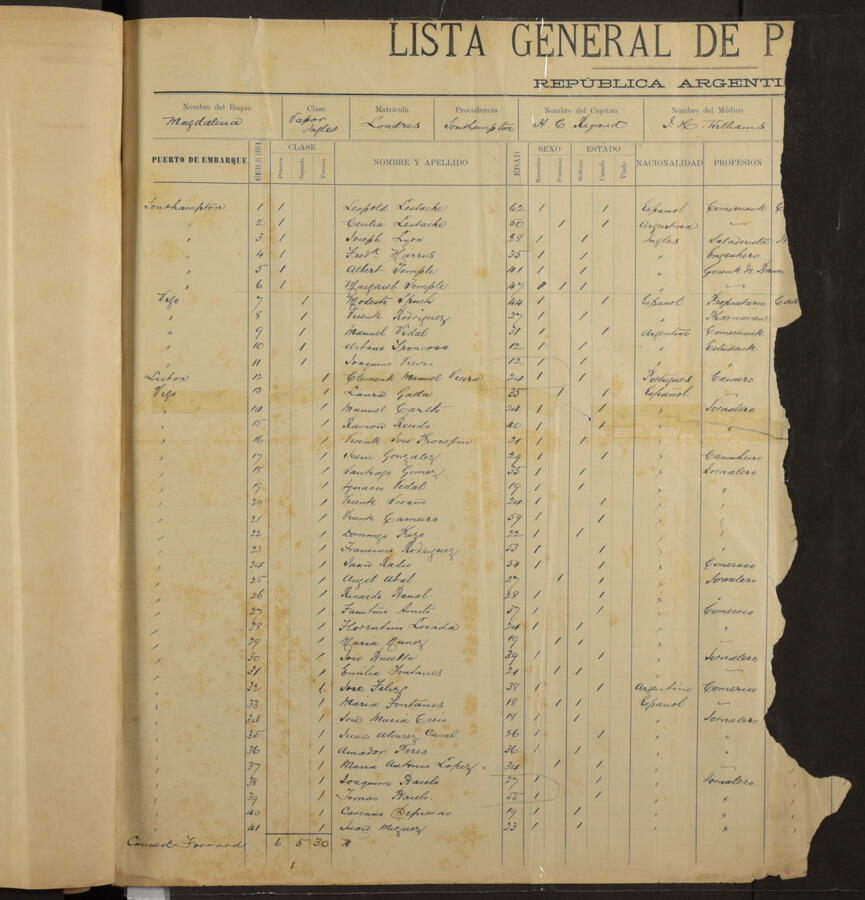 LISTA GENERAL DE P
REPÚBLICA ARGENTI
Nombre del Buque Clase Matrícula Procedencia Nombre del Capitan Nombre del Médico
Magdalena Vapor Ingles Londres Southampton H. C. Rigaud J. C. Williams
PUERTO DE EMBARQUE CLASE NOMBRE Y APELLIDO EDAD SEXO ESTADO NACIONALIDAD PROFESION
Primera Segunda Tercera Masculino Femenino Soltero Casado Viudo
Southampton 1 1 Leopold Lestache 62 1 1 Español Comerciante
" 2 1 Lestache 50 1 1 Argentina "
" 3 1 Joseph Lyon 29 1 1 Ingles Saladerista
" 4 1 Fredk Harris 35 1 1 " Engenhero
" 5 1 Albert Temple 41 1 1 " Gerente de
" 6 1 Margaret Temple 47 1 1 " "
Vigo 7 1 Modesto 44 1 1 Español Propietario
" 8 1 Vicente Rodriguez 27 1 1 "
" 9 1 Manuel Vidal 31 1 1 Argentino Comerciante
" 10 1 Urbano Troncoso 12 1 1 " Estudiante
" 11 1 Joaquin 12 1 1 " "
Lisboa 12 1 Clemente Manuel Vieira 24 1 1 Portugues
Vigo 13 1 Laura Gada 25 1 1 Español "
" 14 1 Manuel 24 1 1 " Jornalero
" 15 1 Ramon 40 1 1 " "
" 16 1 Vicente Jose 21 1 1 " "
" 17 1 Gonzalez 29 1 1 "
" 18 1 Santiago Gomez 35 1 1 " Jornalero
" 19 1 Ignacio Vidal 19 1 1 " "
" 20 1 Vicente 24 1 1 " "
" 21 1 Vicente Cameiro 59 1 1 " "
" 22 1 Domingo 22 1 1 " "
" 23 1 Francisco Rodriguez 53 1 1 " "
" 24 1 Juan 54 1 1 " Comercio
" 25 1 Angel Abal 27 1 1 " Jornalero
" 26 1 Ricardo 28 1 1 " "
" 27 1 Faustino 37 1 1 " Comercio
" 28 1 Florentino Losada 24 1 1 " "
" 29 1 Maria Nunez 19 1 1 " "
" 30 1 Jose 39 1 1 " Jornalero
" 31 1 Emilia Fontanes 21 1 1 " "
" 32 1 Jose Feliz 38 1 1 Argentino Comercio
" 33 1 Maria Fontanes 18 1 1 Español "
" 34 1 Jose Maria 18 1 1 " Jornalero
" 35 1 Juan Alvarez 26 1 1 " "
" 36 1 Amador Peres 26 1 1 " "
" 37 1 Maria Antonia Lopez 34 1 1 " "
" 38 1 Joaquim 27 1 1 " Jornalero
" 39 1 Tomas 55 1 1 " "
" 40 1 19 1 1 " "
" 41 1 Juan Miguez 23 1 1 " "
Carried Forward 6 5 30
1